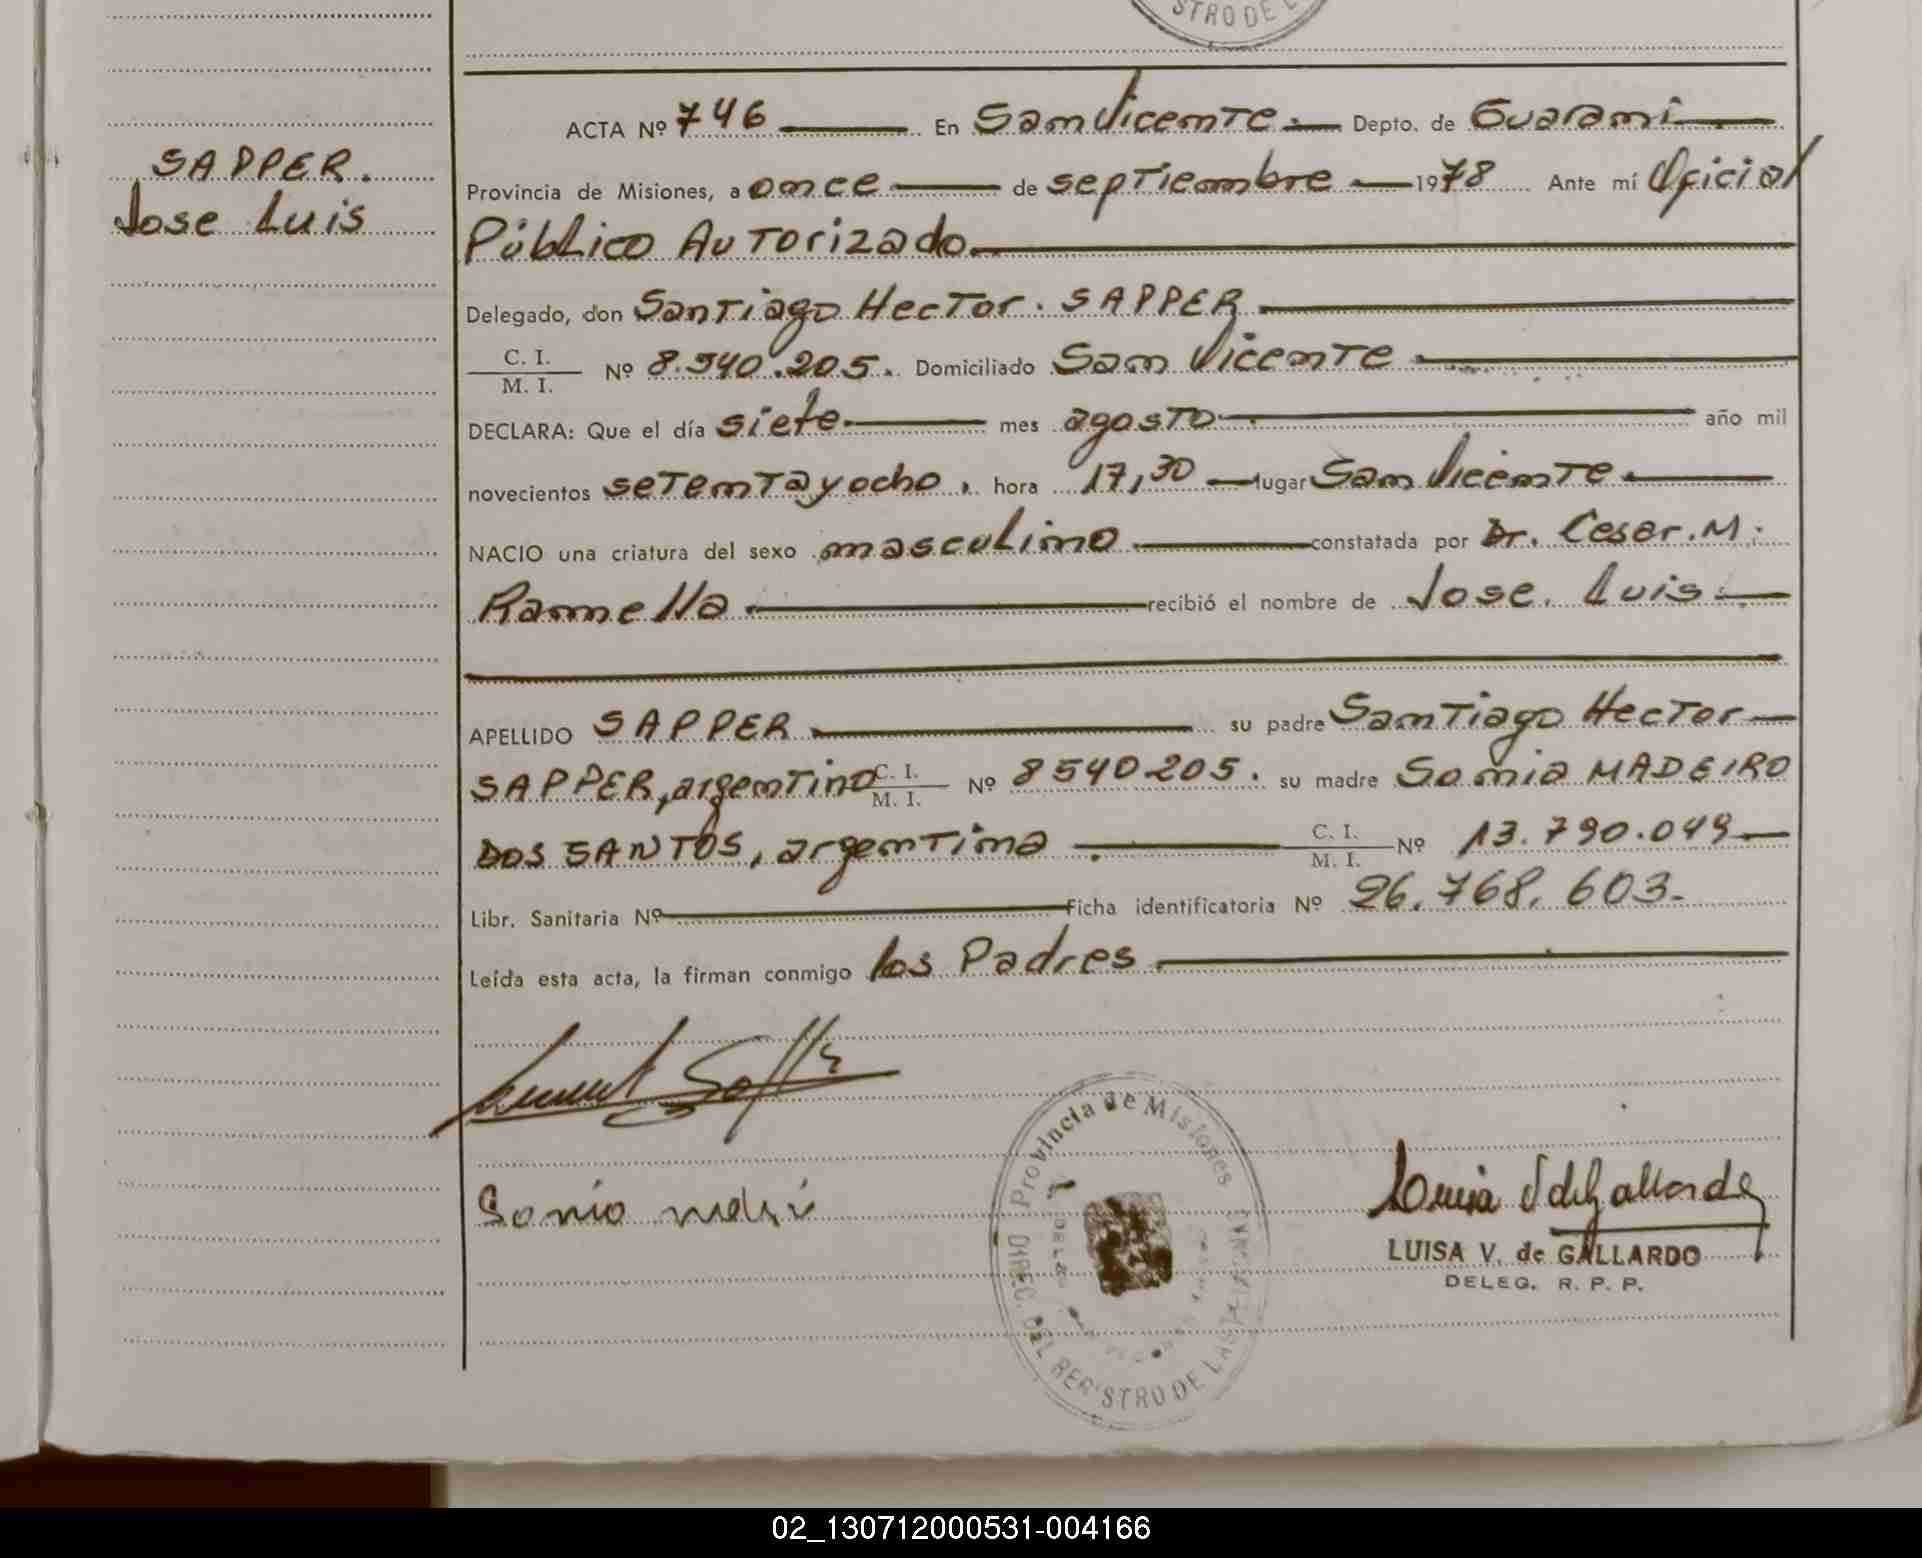 STRO DE L
ACTA Nº 746 En San Vicente Depto. de Guarani
SAPPER.
Jose Luis
Provincia de Misiones, a once de septiembre 1978 Ante mí Oficial
Público Autorizado
Delegado, don Santiago Hector. SAPPER
C. I. / M. I. Nº 8.540.205. Domiciliado San Vicente
DECLARA: Que el día siete mes agosto año mil
novecientos setentayocho, hora 17,30 lugar San Vicente
NACIO una criatura del sexo masculino constatada por Dr. Cesar. M.
Ramella recibió el nombre de Jose. Luis
APELLIDO SAPPER su padre Santiago Hector
SAPPER, argentino C. I. / M. I. Nº 8540205. su madre Sonia MADEIRO
DOS SANTOS, argentina C. I. / M. I. Nº 13.790.049
Libr. Sanitaria Nº Ficha identificatoria Nº 26.768.603.-
Leída esta acta, la firman conmigo los Padres
Provincia de Misiones
DIREC. DEL REGISTRO DE LAS
Sonia
LUISA V. de GALLARDO
DELEG. R. P. P.
02_130712000531-004166